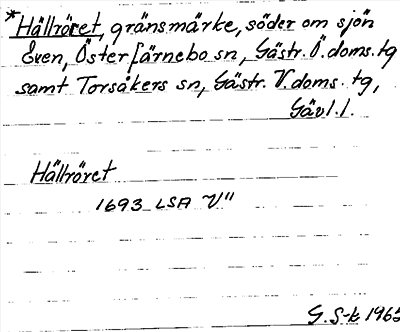 *Hällröret, gränsmärke, söder om sjön
Even, Österfärnebo sn, Gästr. Ö. doms. tg
samt Torsåkers sn, Gästr. V. doms. tg,
Gävl. l.
Hällröret
1693 LSA V"
G. S-k 1965